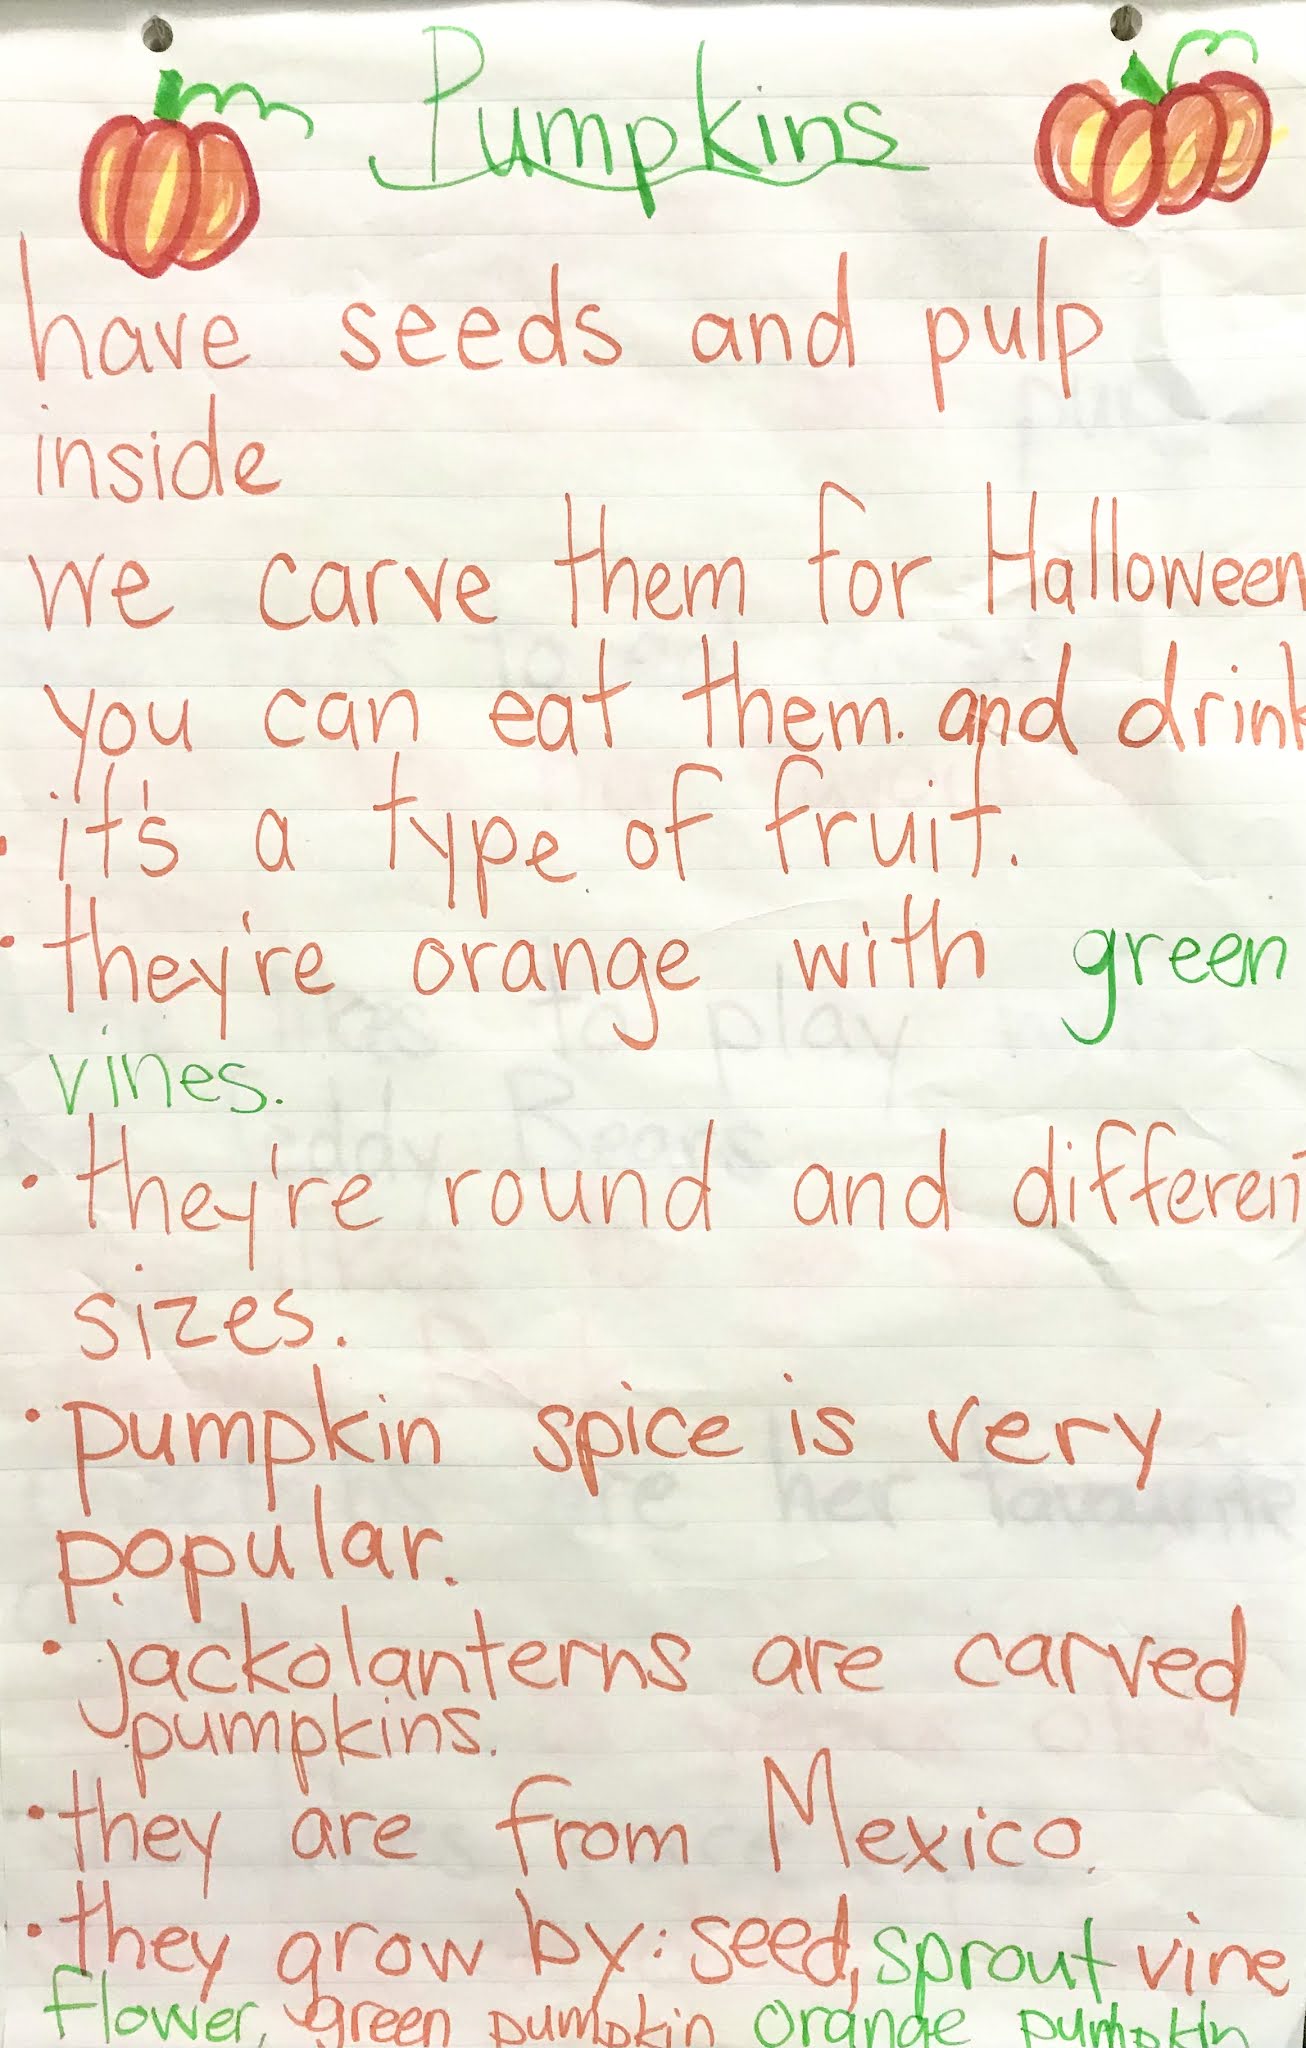 Pumpkins
have seeds and pulp
inside
we carve them for Halloween
you can eat them. and drink
• it's a type of fruit.
• they're orange with green
vines.
• they're round and different
sizes.
• pumpkin spice is very
popular.
• jackolanterns are carved
pumpkins.
• they are from Mexico.
• they grow by: seed, sprout vine
flower, green pumpkin orange pumpkin